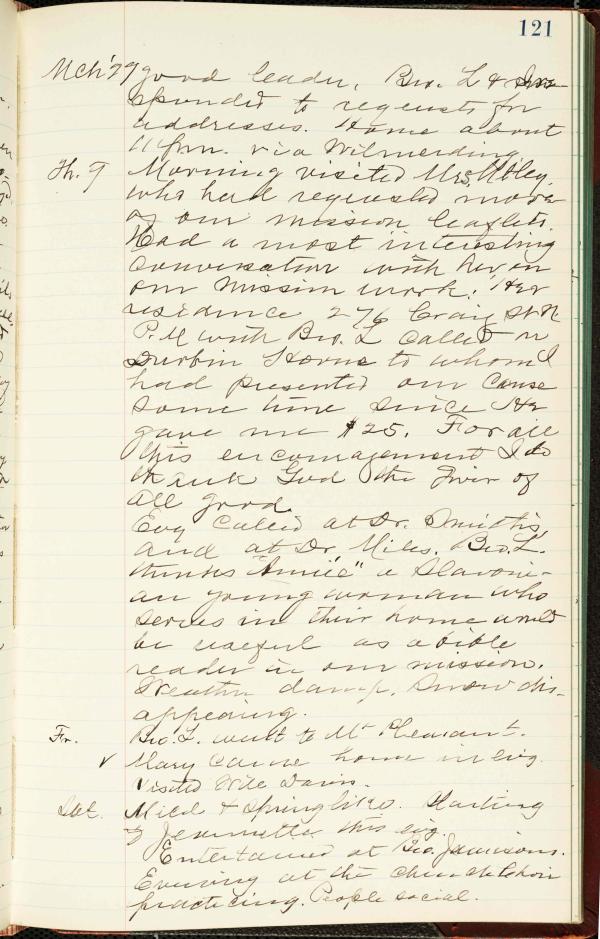 121
Mch '99 good leader. Bro. L & I re-
sponded to requests for
addresses. Home about
11 p.m. via Wilmerding.
Th. 9 Morning visited Mrs.
who had requested more
of our mission leaflets.
Had a most interesting
conversation with her on
our mission work. Her
residence 276 Craig St. N
P.M with Bro. L called on
Durbin Horne to whom I
had presented our cause
some time since He
gave me $25. For all
this encouragement I do
thank God the Giver of
all good.
Evg called at Dr. Smith's,
and at Dr. Miles. Bro. L.
thinks "Annie" a Slavoni-
an young woman who
serves in their home would
be useful as a bible
reader in our mission.
Weather damp. Snow dis-
appearing.
Fr. Bro. L. went to Mt Pleasant.
✓ Mary came home in evg.
Visited Davis.
Sat. Mild & springlike. Starting
to Jeannette this evg.
Entertained at Bro. Jamisons.
Evening at the church choir
practicing. People social.